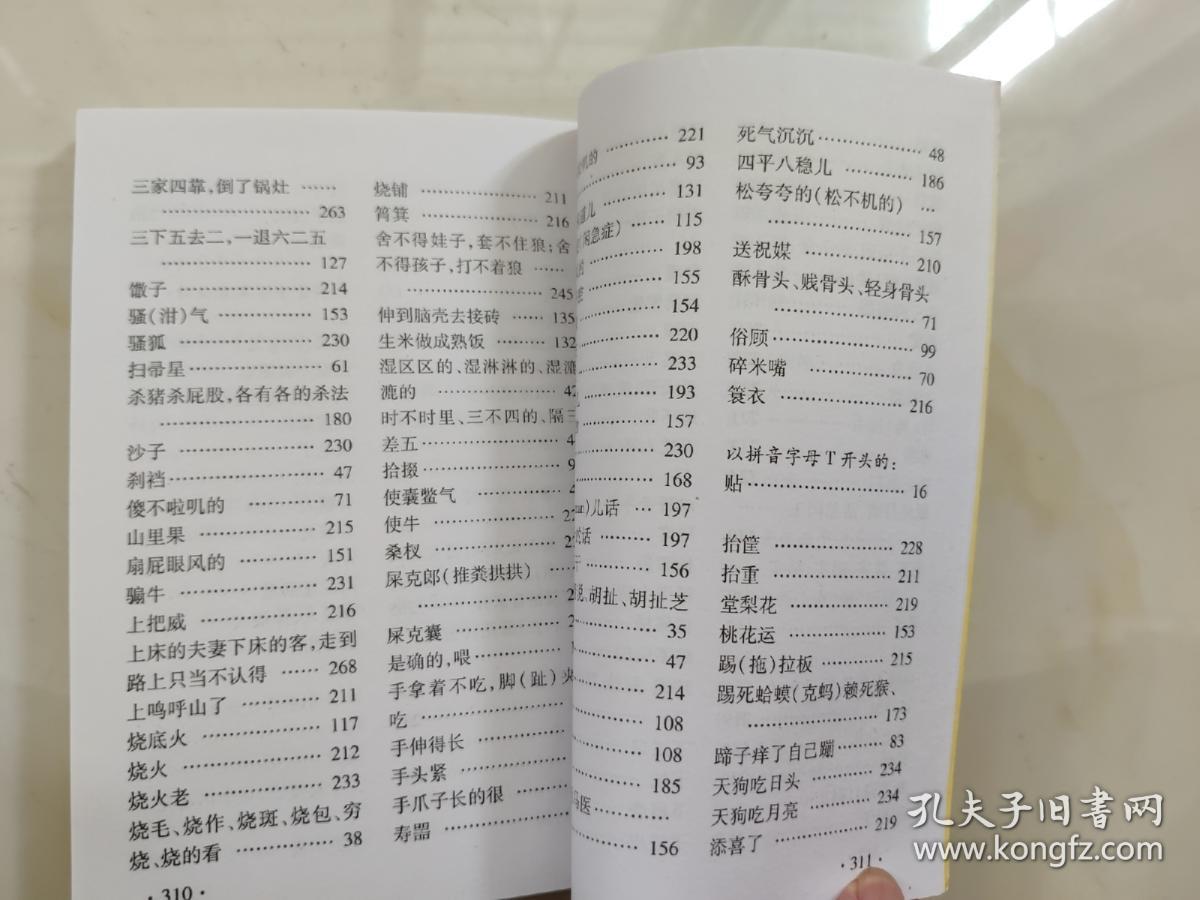 三家四靠,倒了锅灶 ……
……………… 263
三下五去二,一退六二五
……………… 127
馓子 ……………… 214
骚(泔)气 ……………… 153
骚狐 ……………… 230
扫帚星 ……………… 61
杀猪杀屁股,各有各的杀法
……………… 180
沙子 ……………… 230
刹裆 ……………… 47
傻不啦叽的 ……… 71
山里果 ……………… 215
扇屁眼风的 ……… 151
骟牛 ……………… 231
上把威 ……………… 216
上床的夫妻下床的客,走到
路上只当不认得 …… 268
上呜呼山了 ……… 211
烧底火 ……………… 117
烧火 ……………… 212
烧火老 ……………… 233
烧毛、烧作、烧斑、烧包、穷
烧、烧的看 ……… 38
·310·
烧铺 ……………… 211
筲箕 ……………… 216
舍不得娃子,套不住狼;舍
不得孩子,打不着狼 ……
……………… 245
伸到脑壳去接砖 …… 135
生米做成熟饭 …… 132
湿区区的、湿淋淋的、湿漉
漉的 ………………
时不时里、三不四的、隔三
差五 ………………
拾掇 ………………
使囊鳖气 …………
使牛 ………………
桑杈 ………………
屎克郎(推粪拱拱) ……
………………
屎克囊 ………………
是确的,喂 …………
手拿着不吃,脚(趾)夹
吃 ………………
手伸得长 …………
手头紧 ……………
手爪子长的很 ……
寿器 ………………
机的 ……… 221
……… 93
道儿 ……… 131
闲急症) …… 115
……… 198
……… 155
……… 154
……… 220
……… 233
……… 193
……… 157
……… 230
……… 168
)儿话 …… 197
话 ……… 197
……… 156
说、胡扯、胡扯芝
……… 35
……… 47
……… 214
……… 108
……… 108
……… 185
马医
……… 156
死气沉沉 ……………… 48
四平八稳儿 ………… 186
松夸夸的(松不机的) …
……………… 157
送祝媒 ……………… 210
酥骨头、贱骨头、轻身骨头
……………… 71
俗顾 ……………… 99
碎米嘴 ……………… 70
蓑衣 ……………… 216
以拼音字母T开头的:
贴 ……………… 16
抬筐 ……………… 228
抬重 ……………… 211
堂梨花 ……………… 219
桃花运 ……………… 153
踢(拖)拉板 ……… 215
踢死蛤蟆(克蚂)赖死猴、
……………… 173
蹄子痒了自己蹦 …… 83
天狗吃日头 ……… 234
天狗吃月亮 ……… 234
添喜了 ……………… 219
·311·
孔夫子旧书网
www.kongfz.com